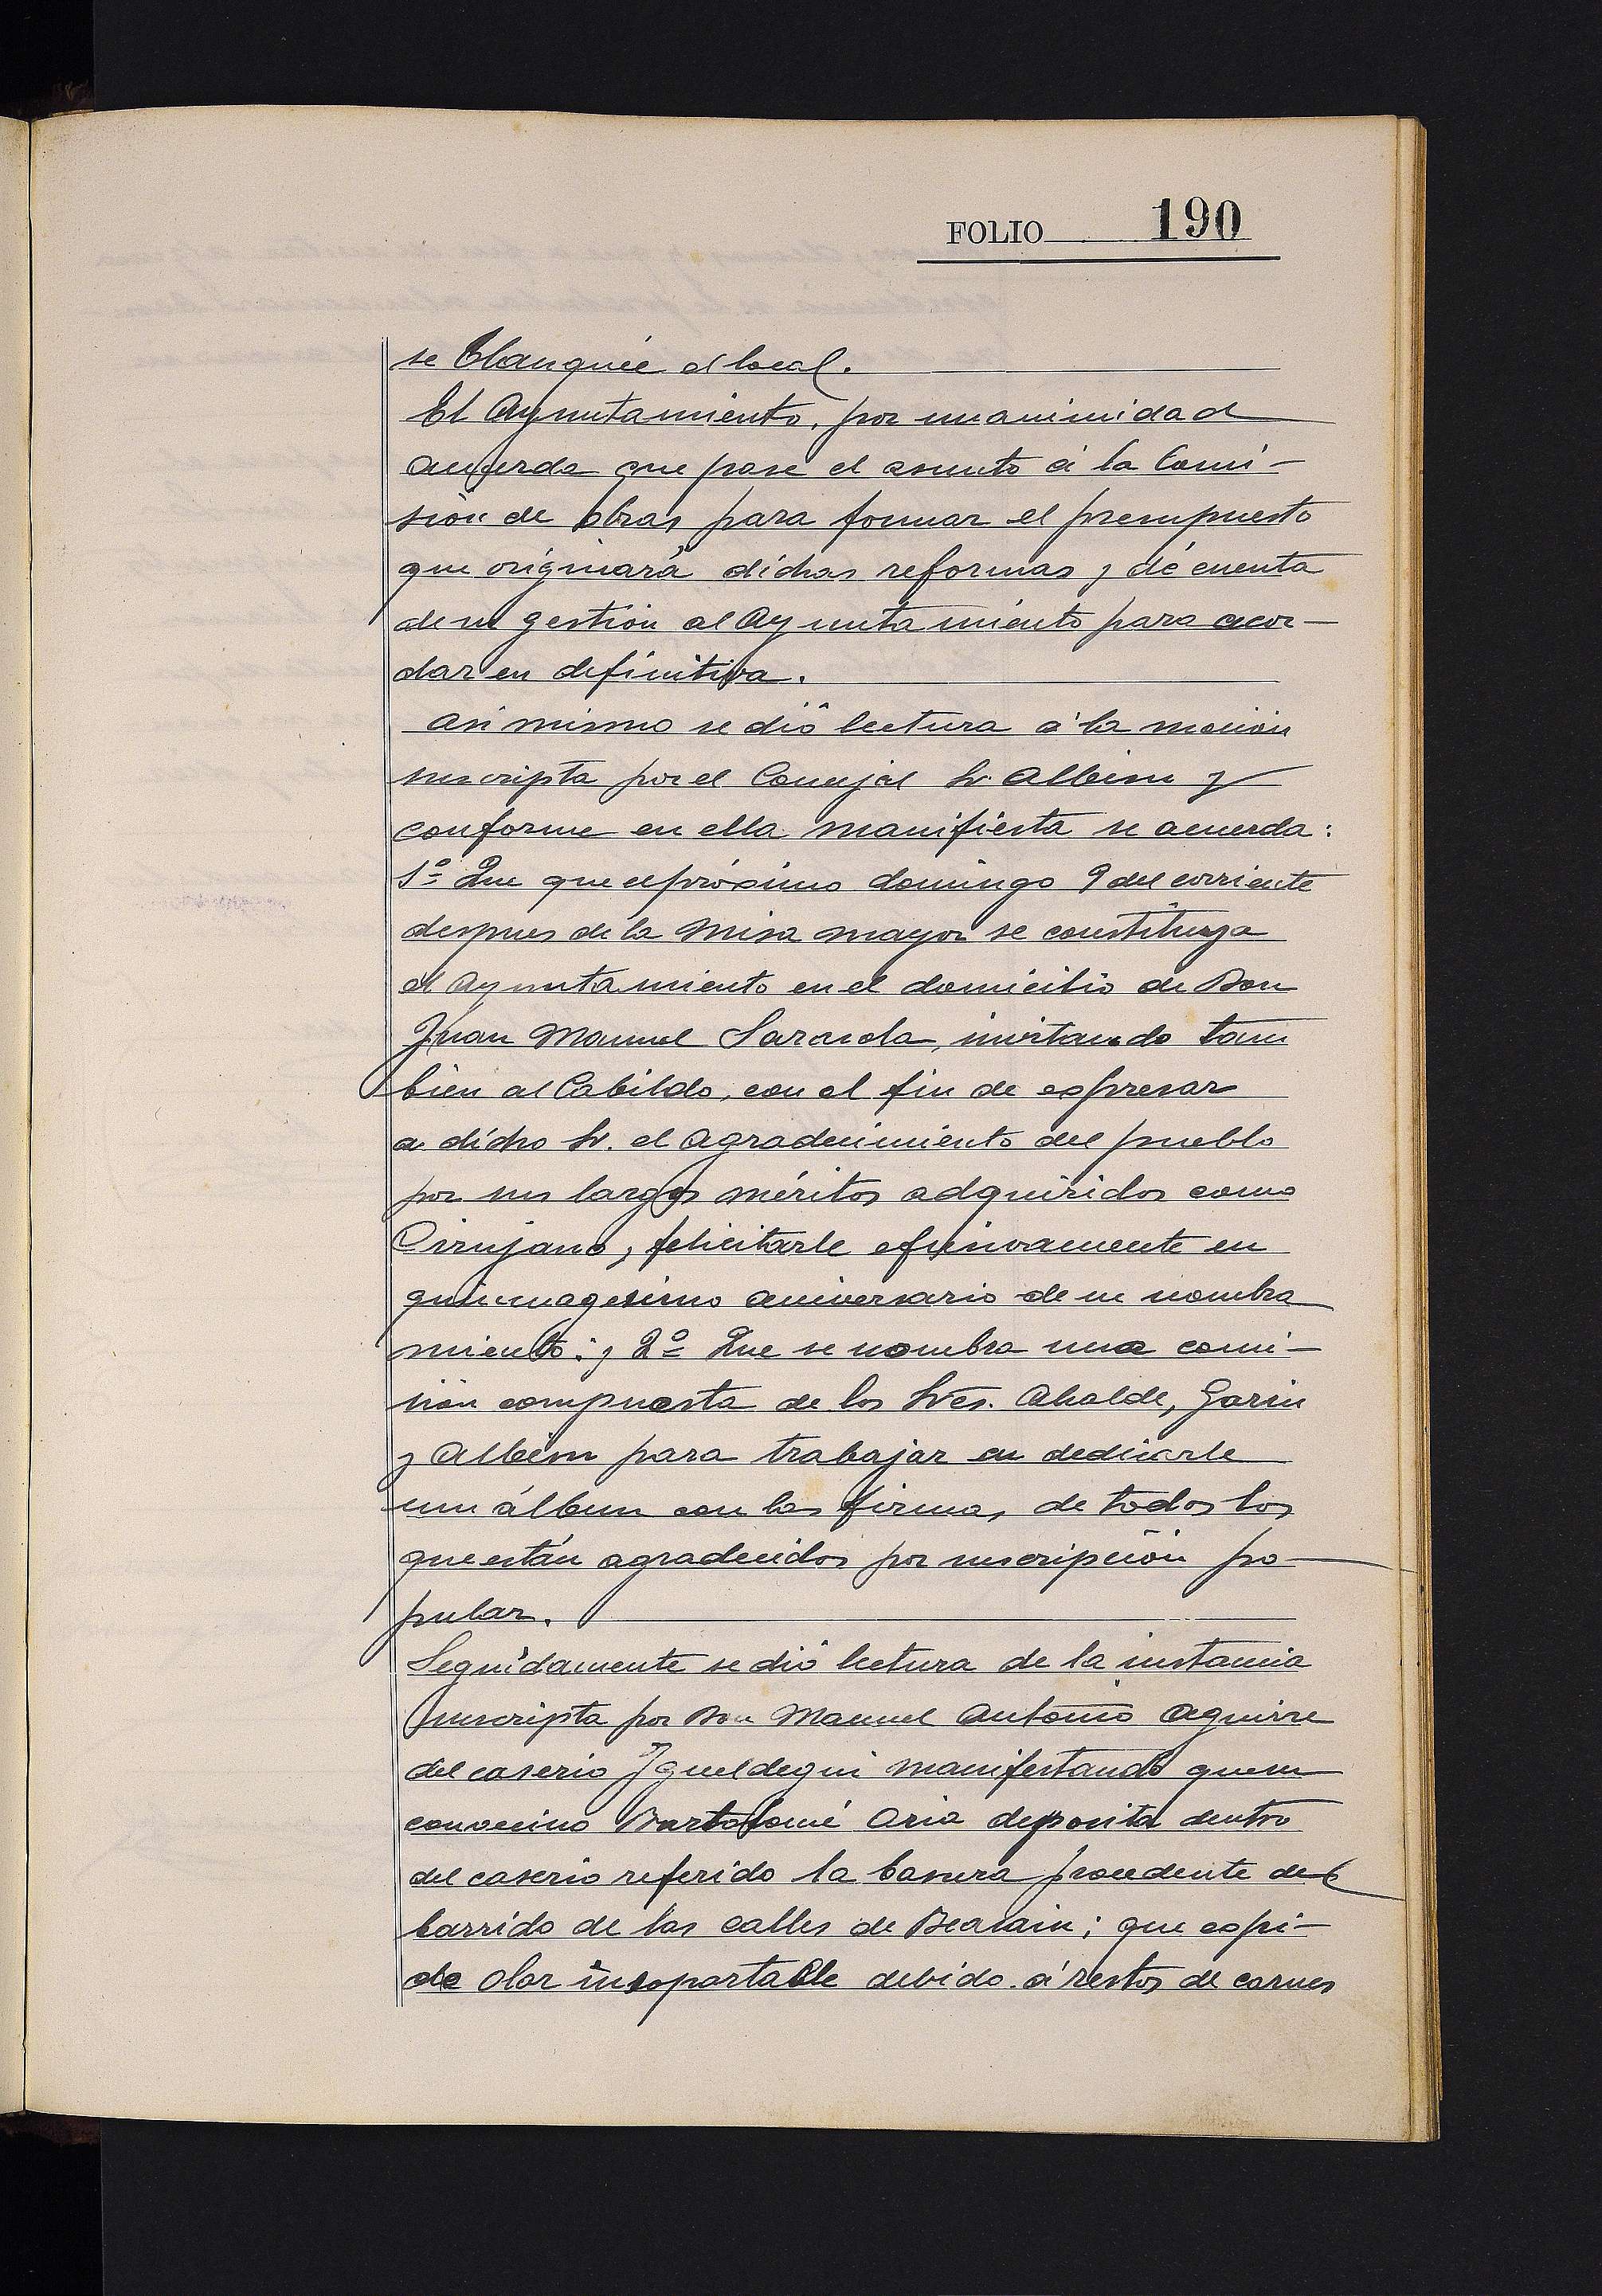 FOLIO 190
se blanquée el local.
El Ayuntamiento, por unanimidad
acuerda que pase el asunto á la Comi-
sión de obras para formar el presupuesto
que originará dichas reformas y dé cuenta
de su gestión al Ayuntamiento para acor-
dar en definitiva.
Asi mismo se dió lectura á la moción
suscripta por el Concejal Sr. Albisu y
conforme en ella manifiesta se acuerda:
1º Que que el próximo domingo 9 del corriente
despues de la Misa mayor se constituya
el Ayuntamiento en el domicilio de Don
Juan Manuel Sarasola, invitando tam
bien al Cabildo, con el fin de espresar
a dicho Sr. el agradecimiento del pueblo
por sus largos méritos adquiridos como
Cirujano, felicitarle efusivamente en
quincuagesimo aniversario de su nombra
miento: y 2º Que se nombra una comi-
sión compuesta de los Sres. Alcalde, Garin
y Albisu para trabajar en dedicarle
un álbum con las firmas de todos los
que están agradecidos por suscripción po-
pular.
Seguidamente se dió lectura de la instancia
suscripta por Don Manuel Antonio Aguirre
del caserio Igueldegui manifestando que su
convecino Bartolomé Aria deposita dentro
del caserio referido la basura procedente del
barrido de las calles de Beasain; que espi-
de olor insoportable debido á restos de carnes